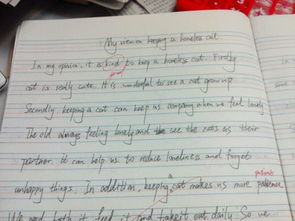 My view on keeping a homeless cat
In my opinion, it is kind to keep a homeless cat. Firstly
cat is really cute. It is wonderful to see a cat grow up
Secondly, keeping a cat can keep us company when we feel lonely
The old always feeling lonely and see the cats as their
partner. it can help us to reduce loneliness and forget
unhappy things. In addition, keeping a cat makes us more patience
We need both it feed it and take it out daily So we